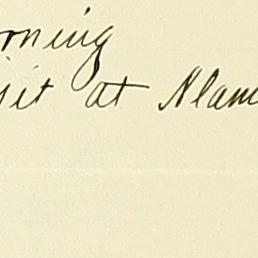 orning
isit at Alam